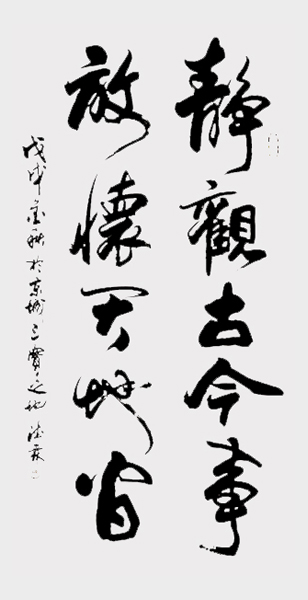 靜觀古今事
放懷天地間
戊戌金秋於京城三寶之地